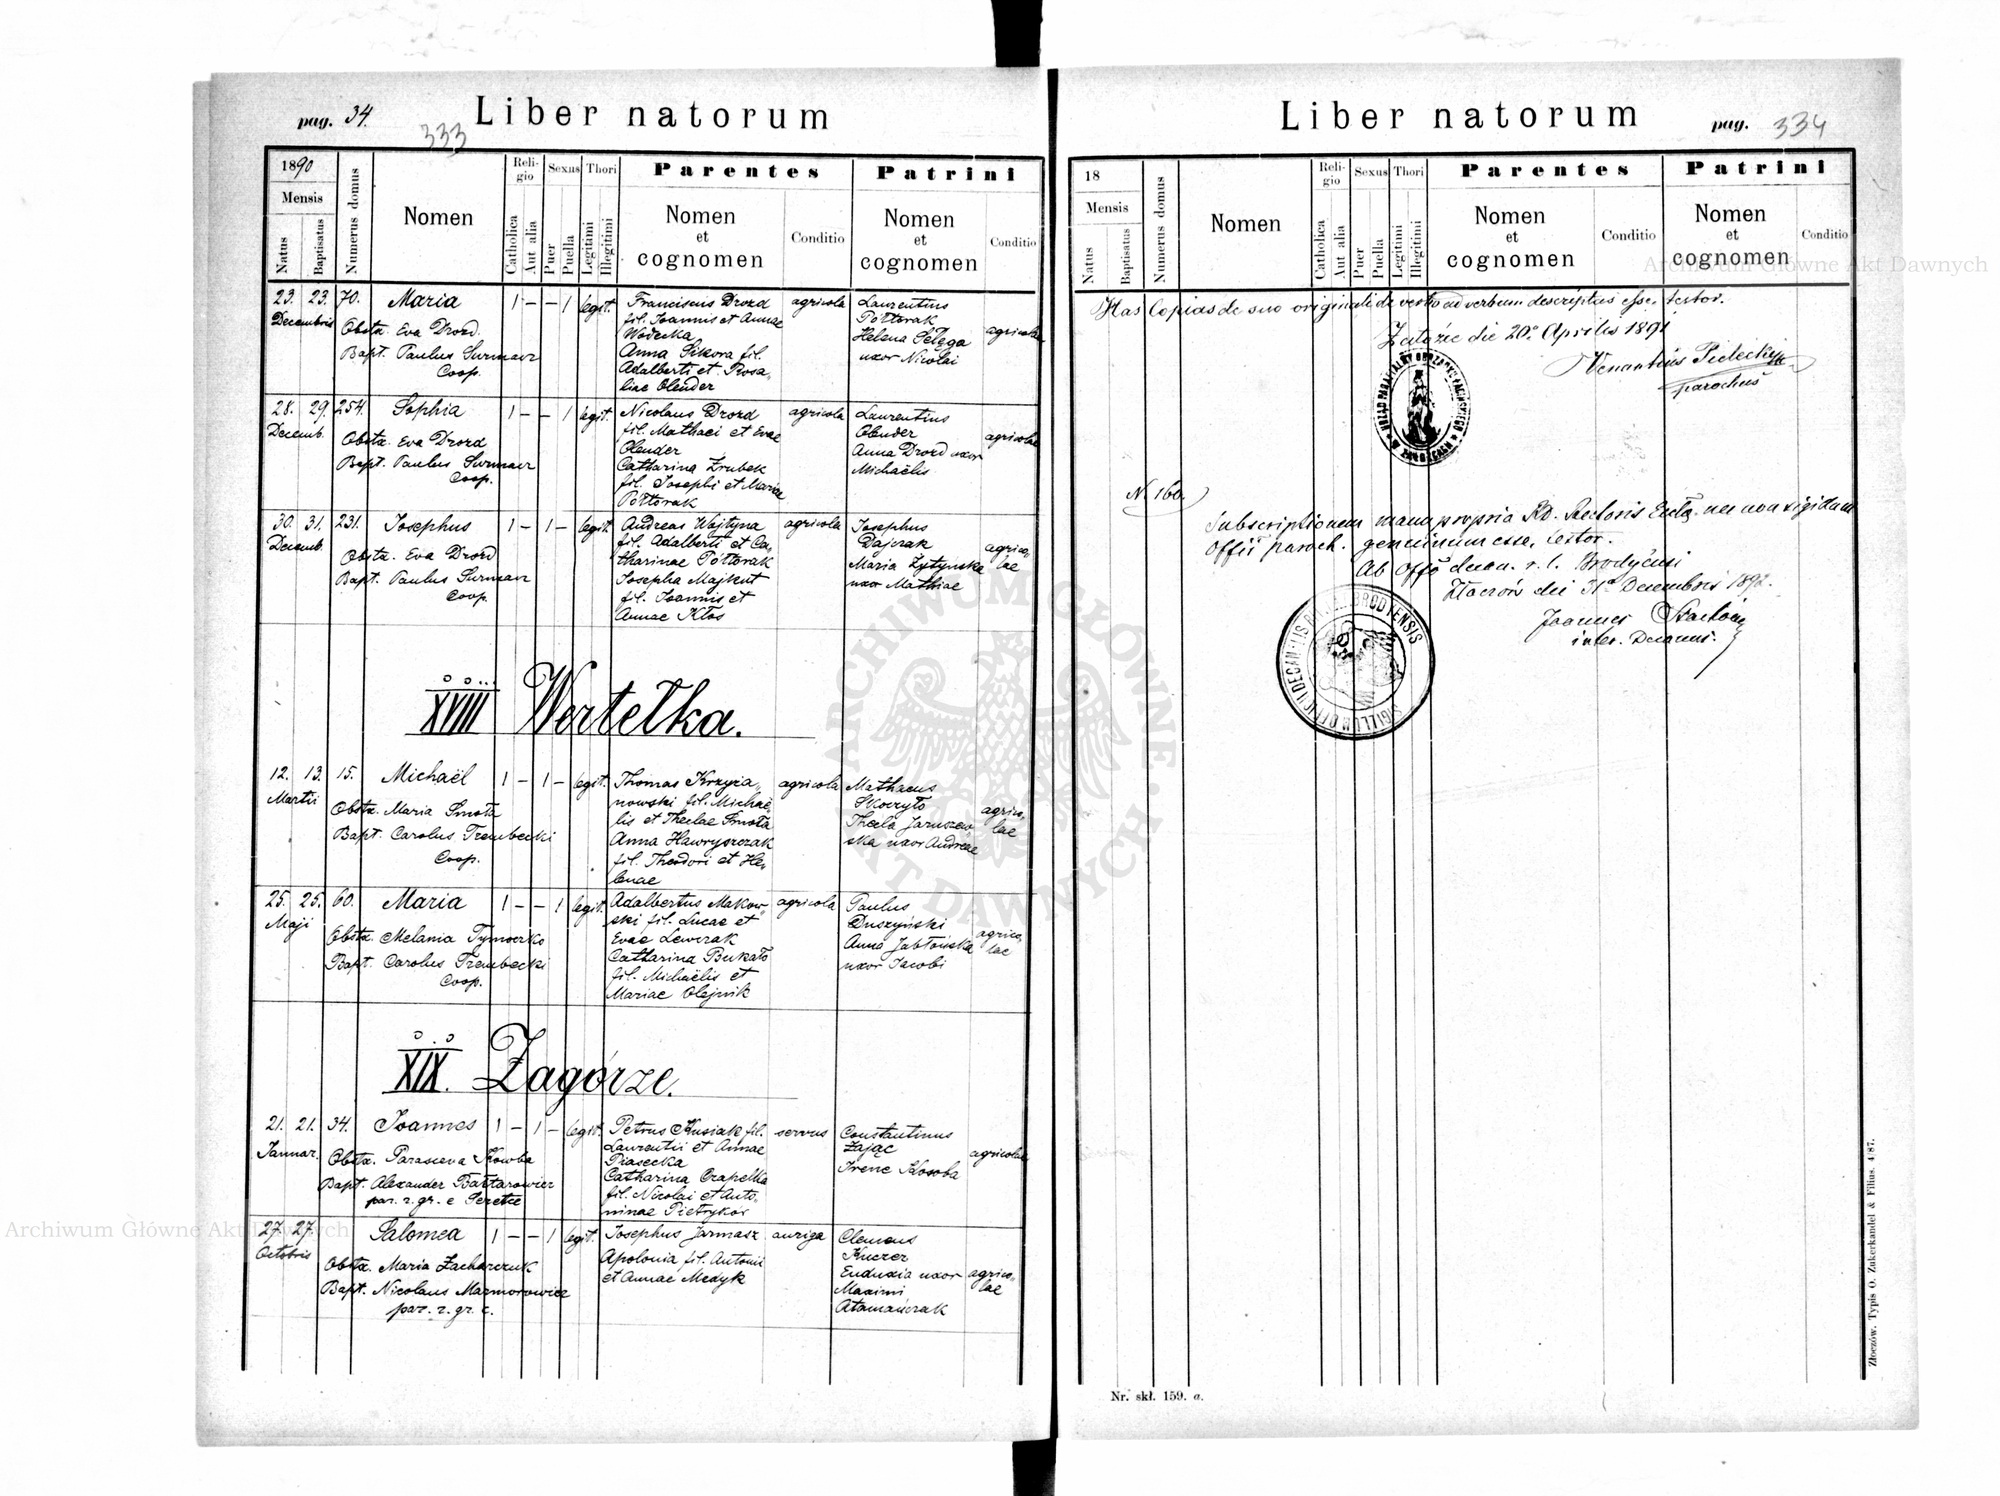 pag. 34. Liber natorum
333
1890
Mensis
Natus
Baptisatus
Numerus domus
Nomen
Religio
Catholica
Aut alia
Sexus
Puer
Puella
Thori
Legitimi
Illegitimi
Parentes
Nomen
et
cognomen
Conditio
Patrini
Nomen
et
cognomen
Conditio
23. 23. 70. Maria 1 – – 1 legit. Franciscus Drozd agricola Laurentius
Decembris fil. Joannis et Annae Półtorak
Obstx. Eva Drozd. Wodecka Helena Szlęga agricolae
Bapt. Paulus Surmacz Anna Sikora fil. uxor Nicolai
Coop. Adalberti et Rosa-
liae Olender
28. 29. 254. Sophia 1 – – 1 legit. Nicolaus Drozd agricola Laurentius
Decemb. fil. Mathaei et Evae Olender agricolae
Obstx. Eva Drozd Olender Anna Drozd uxor
Bapt. Paulus Surmacz Catharina Zrubek Michaëlis
Coop. fil. Josephi et Mariae
Półtorak
30. 31. 231. Josephus 1 – 1 – legit. Andreas Wojtyna agricola Josephus
Decemb. fil. Adalberti et Ca- Dajczak agrico-
Obstx. Eva Drozd tharinae Półtorak Maria Zytyńska lae
Bapt. Paulus Surmacz Josepha Majkut uxor Mathiae
Coop. fil. Joannis et
Annae Kłos
XVIII Wertełka.
12. 13. 15. Michaël 1 – 1 – legit. Thomas Krzyża- agricola Mathaeus
Martii nowski fil. Michaë- Skoczyło agrico-
Obstx. Maria Smoła lis et Theclae Smoła Thecla Jaruszew- lae
Bapt. Carolus Trembecki Anna Hawryszczak ska uxor Andreae
Coop. fil. Theodori et He-
lenae
25. 25. 60. Maria 1 – – 1 legit. Adalbertus Makow- agricola Paulus
Maji ski fil. Lucae et Duszyński agrico-
Obstx. Melania Tymoczko Evae Lewczak Anna Jabłońska lae
Bapt. Carolus Trembecki Catharina Bukało uxor Jacobi
Coop. fil. Michaëlis et
Mariae Olejnik
XIX. Zagórze.
21. 21. 34. Joannes 1 – 1 – legit. Petrus Kusiak fil. servus Constantinus
Januar. Laurentii et Annae Zając agricolae
Obstx. Parasceva Kowba Piasecka Irene Kosoba
Bapt. Alexander Bałtarowicz Catharina Czapelka
par. r. gr. e Seretec fil. Nicolai et Anto-
ninae Pietrykor
27. 27. Salomea 1 – – 1 legit. Josephus Jarmasz auriga Clemens
Octobris Apolonia fil. Antonii Kuczer
Obstx. Maria Zacharczuk et Annae Medyk Euduxia uxor agrico-
Bapt. Nicolaus Marmorowicz Maximi lae
par. r. gr. c. Atamańczak
Liber natorum pag. 334
18
Mensis
Natus
Baptisatus
Numerus domus
Nomen
Religio
Catholica
Aut alia
Sexus
Puer
Puella
Thori
Legitimi
Illegitimi
Parentes
Nomen
et
cognomen
Conditio
Patrini
Nomen
et
cognomen
Conditio
Has Copias de suo originali de verbo ad verbum descriptas esse, testor.
Załoźce die 20. Aprilis 1891
Venantius Pidecki
parochus
N. 160.
Subscriptionem manu propria Rd. Rectoris Eccla nec non sigillum
Offii paroch. genuinum esse, testor.
Ab Offo decan. r. l. Brodycensi
Złoczów die 31 Decembris 1892.
Joannes
inter. Decanus.
SIGILLUM OFFICII DECANALIS BRODYENSIS
ARCHIWUM GŁÓWNE AKT DAWNYCH
Archiwum Główne Akt Dawnych
Archiwum Główne Akt Dawnych
Nr. skł. 159. a.
Złoczów. Typis O. Zukerkandel & Filius. 4/87.